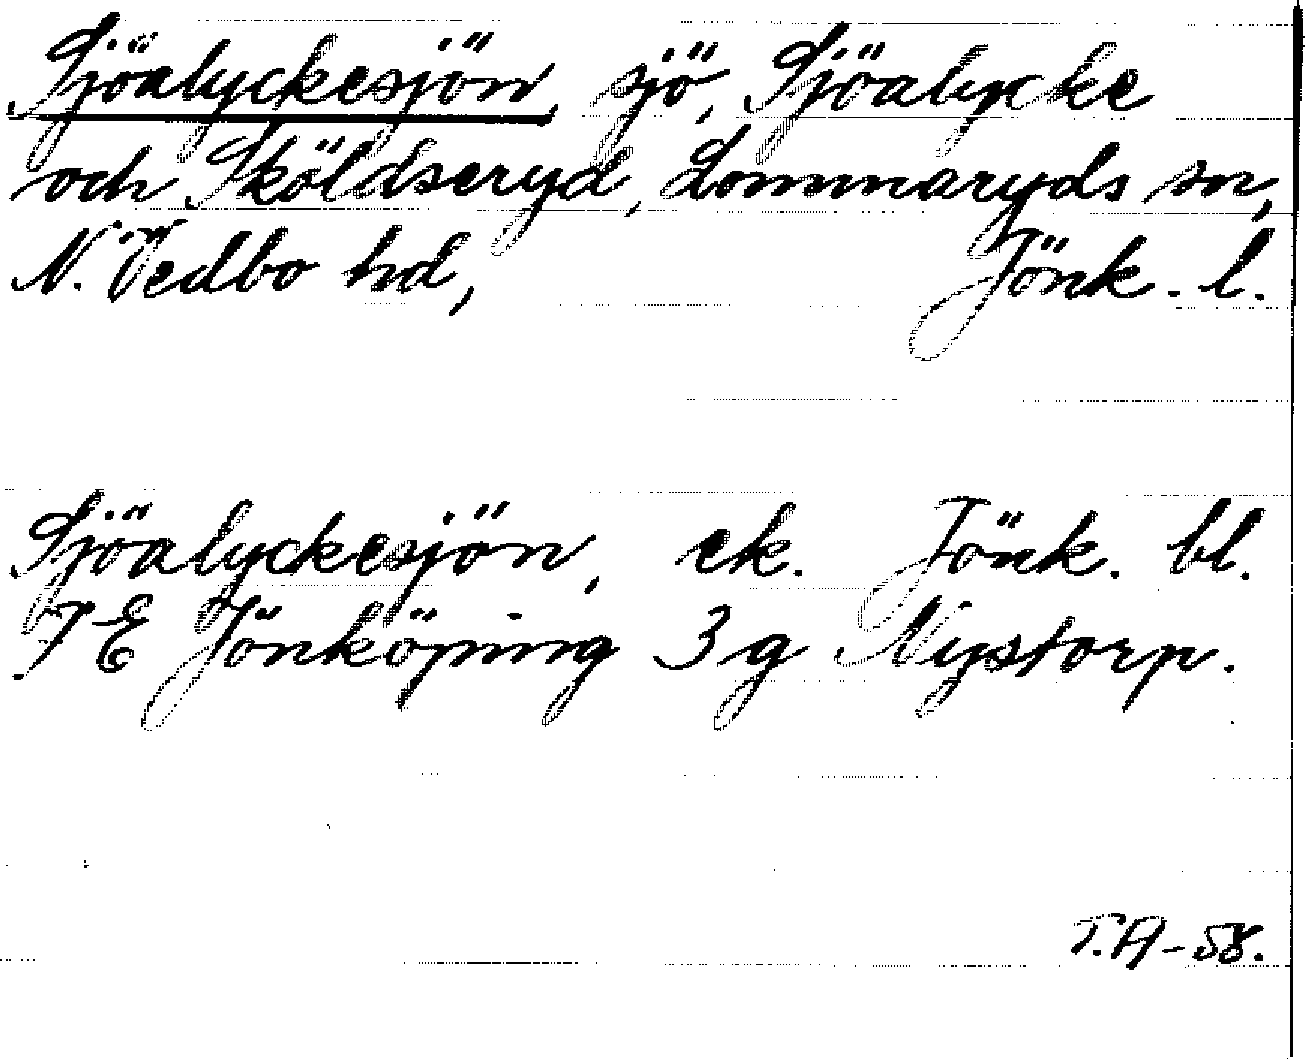 Sjöalyckesjön, sjö, Sjöalycke
och Sköldseryd, Lommaryds sn,
N. Vedbo hd, Jönk. l.
Sjöalyckesjön, ek. Jönk. bl.
7E Jönköping 3g Nystorp.
T.A-58.